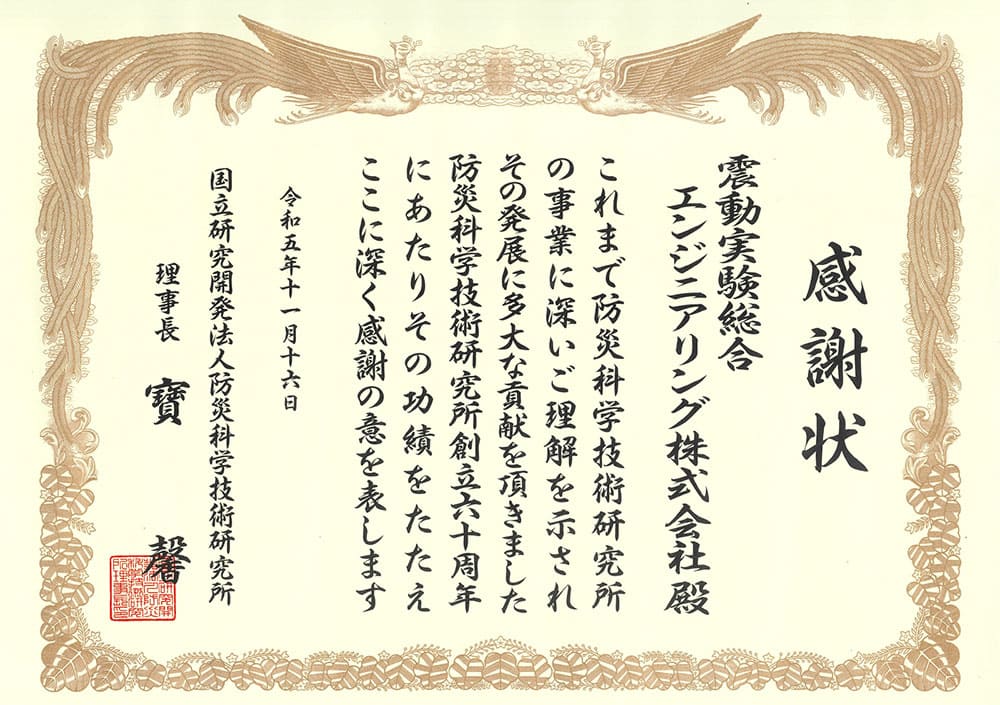 感謝状
震動実験総合
エンジニアリング株式会社殿
これまで防災科学技術研究所
の事業に深いご理解を示され
その発展に多大な貢献を頂きました
防災科学技術研究所創立六十周年
にあたりその功績をたたえ
ここに深く感謝の意を表します
令和五年十一月十六日
国立研究開発法人防災科学技術研究所
理事長 寶 馨